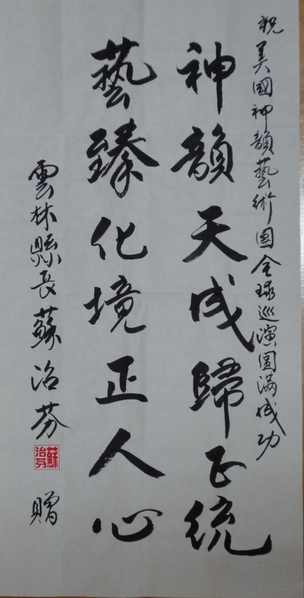 祝美國神韻藝術團全球巡演圓滿成功
神韻天成歸正統
藝臻化境正人心
雲林縣長蘇治芬 贈
蘇治芬